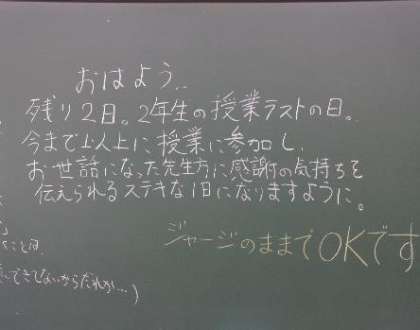 おはよう。
残り2日。2年生の授業テストの日。
今まで以上に授業に参加し、
お世話になった先生方に感謝の気持ちを
伝えられるステキな1日になりますように。
ジャージのままでOKです